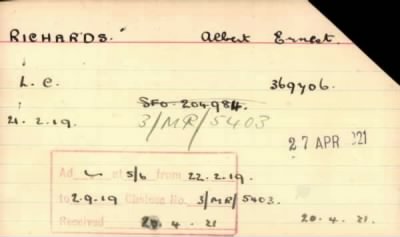 RICHARDS. Albert Ernest.
L. C. 369406.
SFO. 204984.
21. 2. 19. 3/MR/5403
27 APR 1921
Ad at 5/6 from 22.2.19.
to 2.9.19 No. 3/MR/5403.
Received 20. 4. 21 20. 4. 21